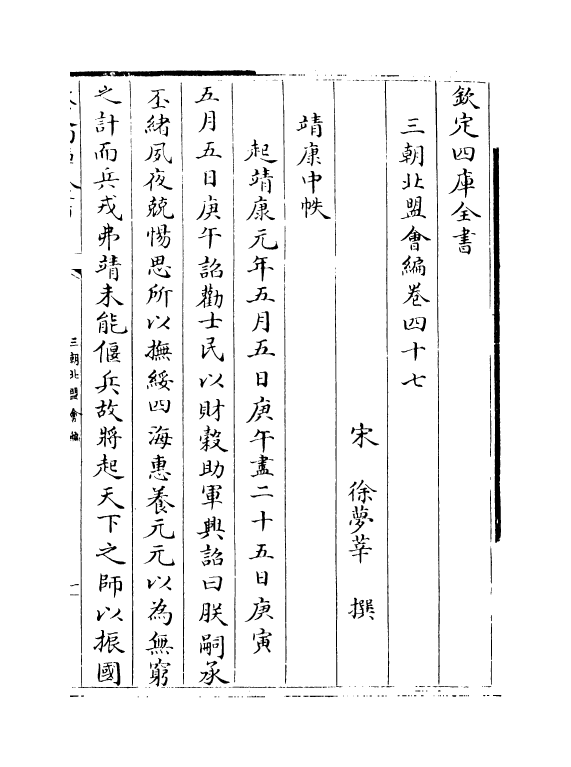 欽定四庫全書
三朝北盟會編卷四十七
宋 徐夢莘 撰
靖康中帙
起靖康元年五月五日庚午盡二十五日庚寅
五月五日庚午詔勸士民以財穀助軍興詔曰朕嗣承
丕緒夙夜兢惕思所以撫綏四海惠養元元以為無窮
之計而兵戎弗靖未能偃兵故將起天下之師以振國
三朝北盟會編